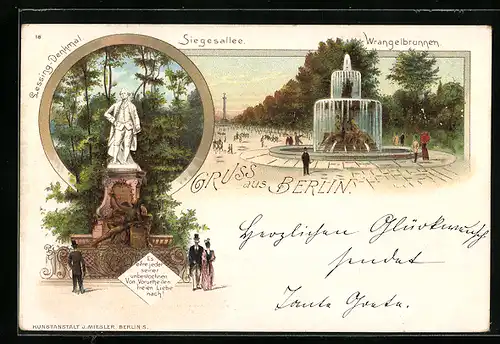 18
Lessing-Denkmal
Siegesallee.
Wrangelbrunnen.
GRUSS aus BERLIN.
Herzlichen Glückwunsch
sendet
Tante Grete.
Es
eifre jeder
seiner
unbestochnen
Von Vorurtheilen
freien Liebe
nach!
KUNSTANSTALT J. MIESLER, BERLIN S.